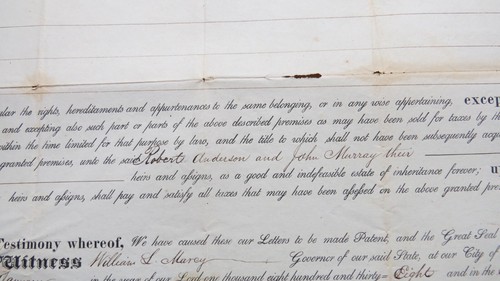 ular the rights, hereditaments and appurtenances to the same belonging, or in any wise appertaining, excep
and excepting also such part or parts of the above described premises as may have been sold for taxes by th
within the time limited for that purpose by law, and the title to which shall not have been subsequently acqu
granted premises, unto the said Robert Anderson and John Murray their
heirs and assigns, as a good and indefeasible estate of inheritance forever; u
heirs and assigns, shall pay and satisfy all taxes that may have been assessed on the above granted pre
Testimony whereof, We have caused these our Letters to be made Patent, and the Great Seal
Witness William L. Marcy Governor of our said State, at our City of
in the year of our Lord one thousand eight hundred and thirty-Eight and in the